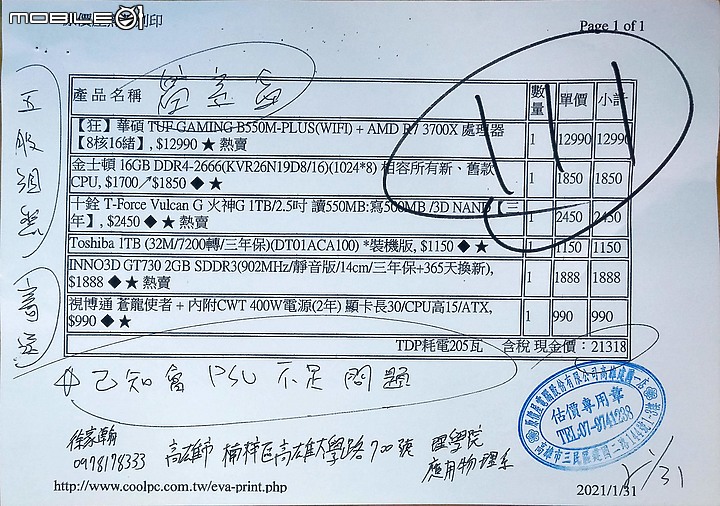 MOBILE01
原價屋 列印
Page 1 of 1
產品名稱
數量 單價 小計
【狂】華碩 TUF GAMING B550M-PLUS(WIFI) + AMD R7 3700X 處理器
【8核16緒】, $12990 ★ 熱賣 1 12990 12990
金士頓 16GB DDR4-2666(KVR26N19D8/16)(1024*8) 相容所有新、舊款
CPU, $1700↗$1850 ◆★ 1 1850 1850
十銓 T-Force Vulcan G 火神G 1TB/2.5吋 讀550MB:寫500MB /3D NAND【三
年】, $2450 ◆★ 熱賣 1 2450 2450
Toshiba 1TB (32M/7200轉/三年保)(DT01ACA100) *裝機版, $1150 ◆★ 1 1150 1150
INNO3D GT730 2GB SDDR3(902MHz/靜音版/14cm/三年保+365天換新),
$1888 ◆★ 熱賣 1 1888 1888
視博通 蒼龍使者 + 內附CWT 400W電源(2年) 顯卡長30/CPU高15/ATX,
$990 ◆★ 1 990 990
TDP耗電205瓦 含稅 現金價: 21318
已知會 PSU 不足 問題
估價專用章
TEL:07-9741238
徐家翰
0978178333
高雄市 楠梓區高雄大學路700號 理學院
應用物理系
http://www.coolpc.com.tw/eva-print.php
2021/1/31